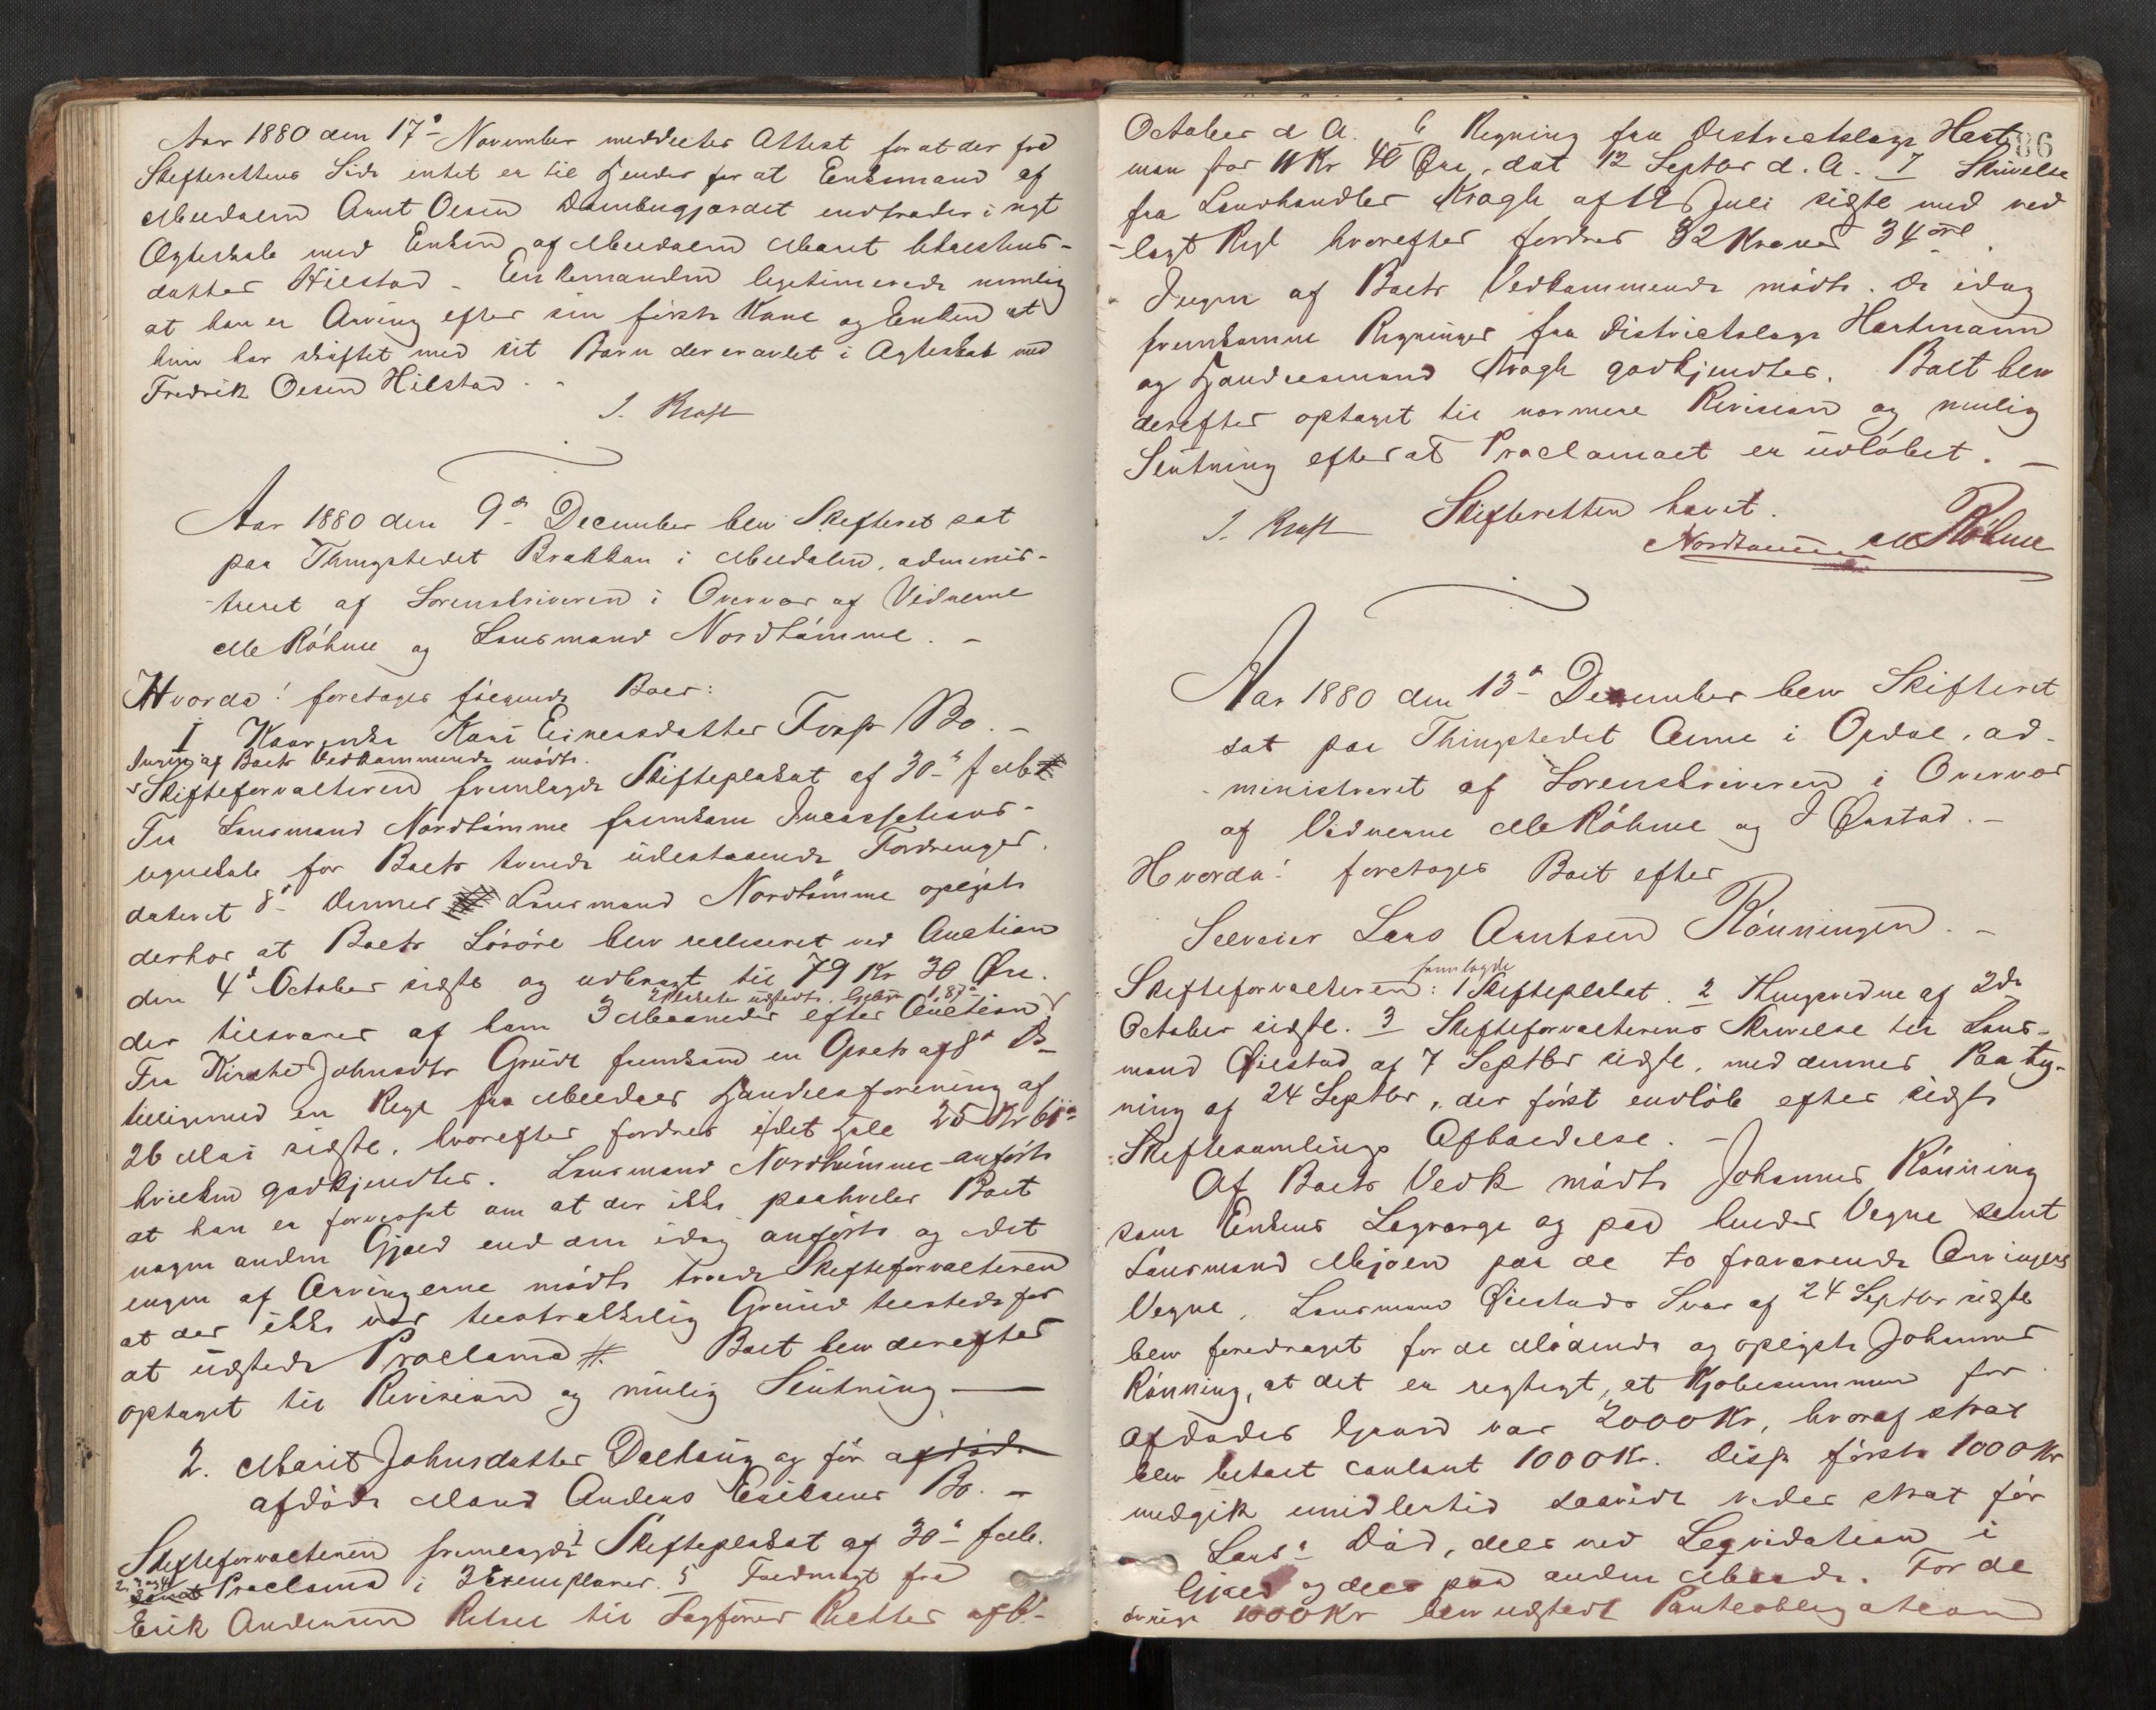 Aar 1880 den 17de November meddeeltes Attest for at der fra
Skifterettens Side intet er til Hinder for at Enkemand af
Meldalen Arnt Olsen Dambugjardet indtræder i nyt
Ægteskab med Enken af Meldalen Marit
datter Hilstad. Enkemanden legitimerede nemlig
at han er Arving efter sin første Kone og Enken at
hun har skiftet med sit Barn der er avlet i Ægteskab med
Fredrik Olsen Hilstad.
J. Kraft
Aar 1880 den 9de December blev Skifteret sat
paa Thingstedet Brakkan i Meldalen, adminis-
treret af Sorenskriveren i Overvær af Vidnerne
M Røhme og Lensmand Nordtømme. -
Hvorda! foretages følgende Boer:
1 Kaarenke Kari Einersdatter Bo. -
Ingen af Boets Vedkommende mødte.
Skifteforvalteren fremlagde Skifteplakat af 30te f. M.
Fra Lensmand Nordtømme fremkom Incassations-
regnskab for Boets tvende udestaaende Fordringer.
dateret 8de dennes Lensmand Nordtømme oplyste
derhos at Boets Løsøre blev realiseret ved Auction
den 4de October sidste og udbragt til 79 Kr 30 Øre.
2 Plakater udstedte. Gebyr 1,87
der tilsvares af ham 3 Maaneder efter Auction
Fra Kirsti Johnsdtr Grüdt fremkom en Opsats af 8de ds
tilligemed en Regn fra Meldals Handelsforening af
26 Mai sidste, hvorefter fordres i det Hele 25 Kr
hvilken godkjendtes. Lensmand Nordtømme anførte
at han er forvisset om at der ikke paahviler Boet
nogen anden Gjæld end den idag anførte og idet
ingen af Arvingerne mødte troede Skifteforvalteren
at der ikke var tilstrækkelig Grund tilstede for
at udstede Proclama. Boet blev derefter
optaget til Revision og mulig Slutning
2. Marit Johnsdatter Dalhaug og før afdød
afdøde Mand Anders Eriksens Bo. -
Skifteforvalteren fremlagde 1 Skifteplakat af 30te f. M.
2, 3 og 4 samt Proclama i 3 Exemplarer. 5 Fuldmagt fra
Erik Andersen til Sagfører Richter af 6te
October d. A. 6 Regning fra Districtslæge Hart-
86
man for 11 Kr 40 Øre, dat 12 Septbr d. A. 7 Skrivelse
fra Landhandler Kragh af 12 Juli sidste med ved
lagt Regn hvorefter fordres 32 Kroner 34 øre.
Ingen af Boets Vedkommende mødte. De idag
fremkomne Regninger fra Districtslæge Hartmann
og Handelsmand Kragh godkjendtes. Boet blev
derefter optaget til nærmere Revision og mulig
Slutning efterat Proclamaet er udløbet. -
Skifteretten hævet.
J. Kraft Nordtømme M Røhme
Aar 1880 den 13de December blev Skifteret
sat paa Thingstedet Aune i Opdal, ad-
ministreret af Sorenskriveren i Overvær
af Vidnerne M Røhme og J Ørstad. -
Hvorda! foretages Boet efter
Selveier Lars Arntsen Rønningen. -
Skifteforvalteren fremlagde: 1 Skifteplakat. 2 Thingsvidne af 2de
October sidste. 3 Skifteforvalterens Skrivelse til Lens-
mand Øiestad af 7 Septbr sidste, med dennes Paateg-
ning af 24 Septbr, der først indløb efter sidste
Skiftesamlings Afholdelse. -
Af Boets Vedk mødte Johannes Rønning
som Enkens Laugværge og paa hendes Vegne samt
Lensmand Mjøen paa de to fraværende Arvingers
Vegne. Lensmand Øiestads Svar af 24 Septbr sidste
blev foredraget for de Mødende og oplyste Johannes
Rønning, at det er rigtigt, at Kjøbesummen for
Afdødes Gaard var 2000 Kr, hvoraf strax
blev betalt contant 1000 Kr. Disse første 1000 Kr
medgik imidlertid saavidt vides strax før
Lars's Død, dels ved Liqvidation i
Gjæld og dels paa anden Maade. For de
øvrige 1000 Kr blev udstedt Panteobligation